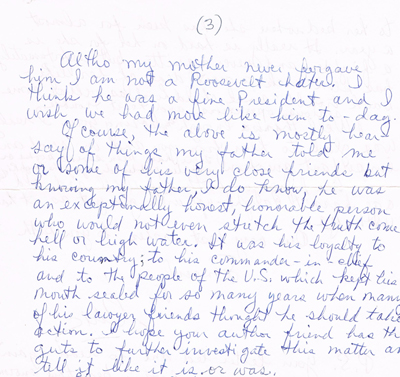 (3)
Altho my mother never forgave
him I am not a Roosevelt hater. I
think he was a fine President and I
wish we had more like him to-day.
Of course, the above is mostly hear
say of things my father told me
or some of his very close friends but
knowing my father, I do know, he was
an exceptionally honest, honorable person
who would not even stretch the truth come
hell or high water. It was his loyalty to
his country; to his commander-in-chief
and to the people of the U.S. which kept his
mouth sealed for so many years when many
of his lawyer friends thought he should take
action. I hope your author friend has th
guts to further investigate this matter an
tell it like it is or was.